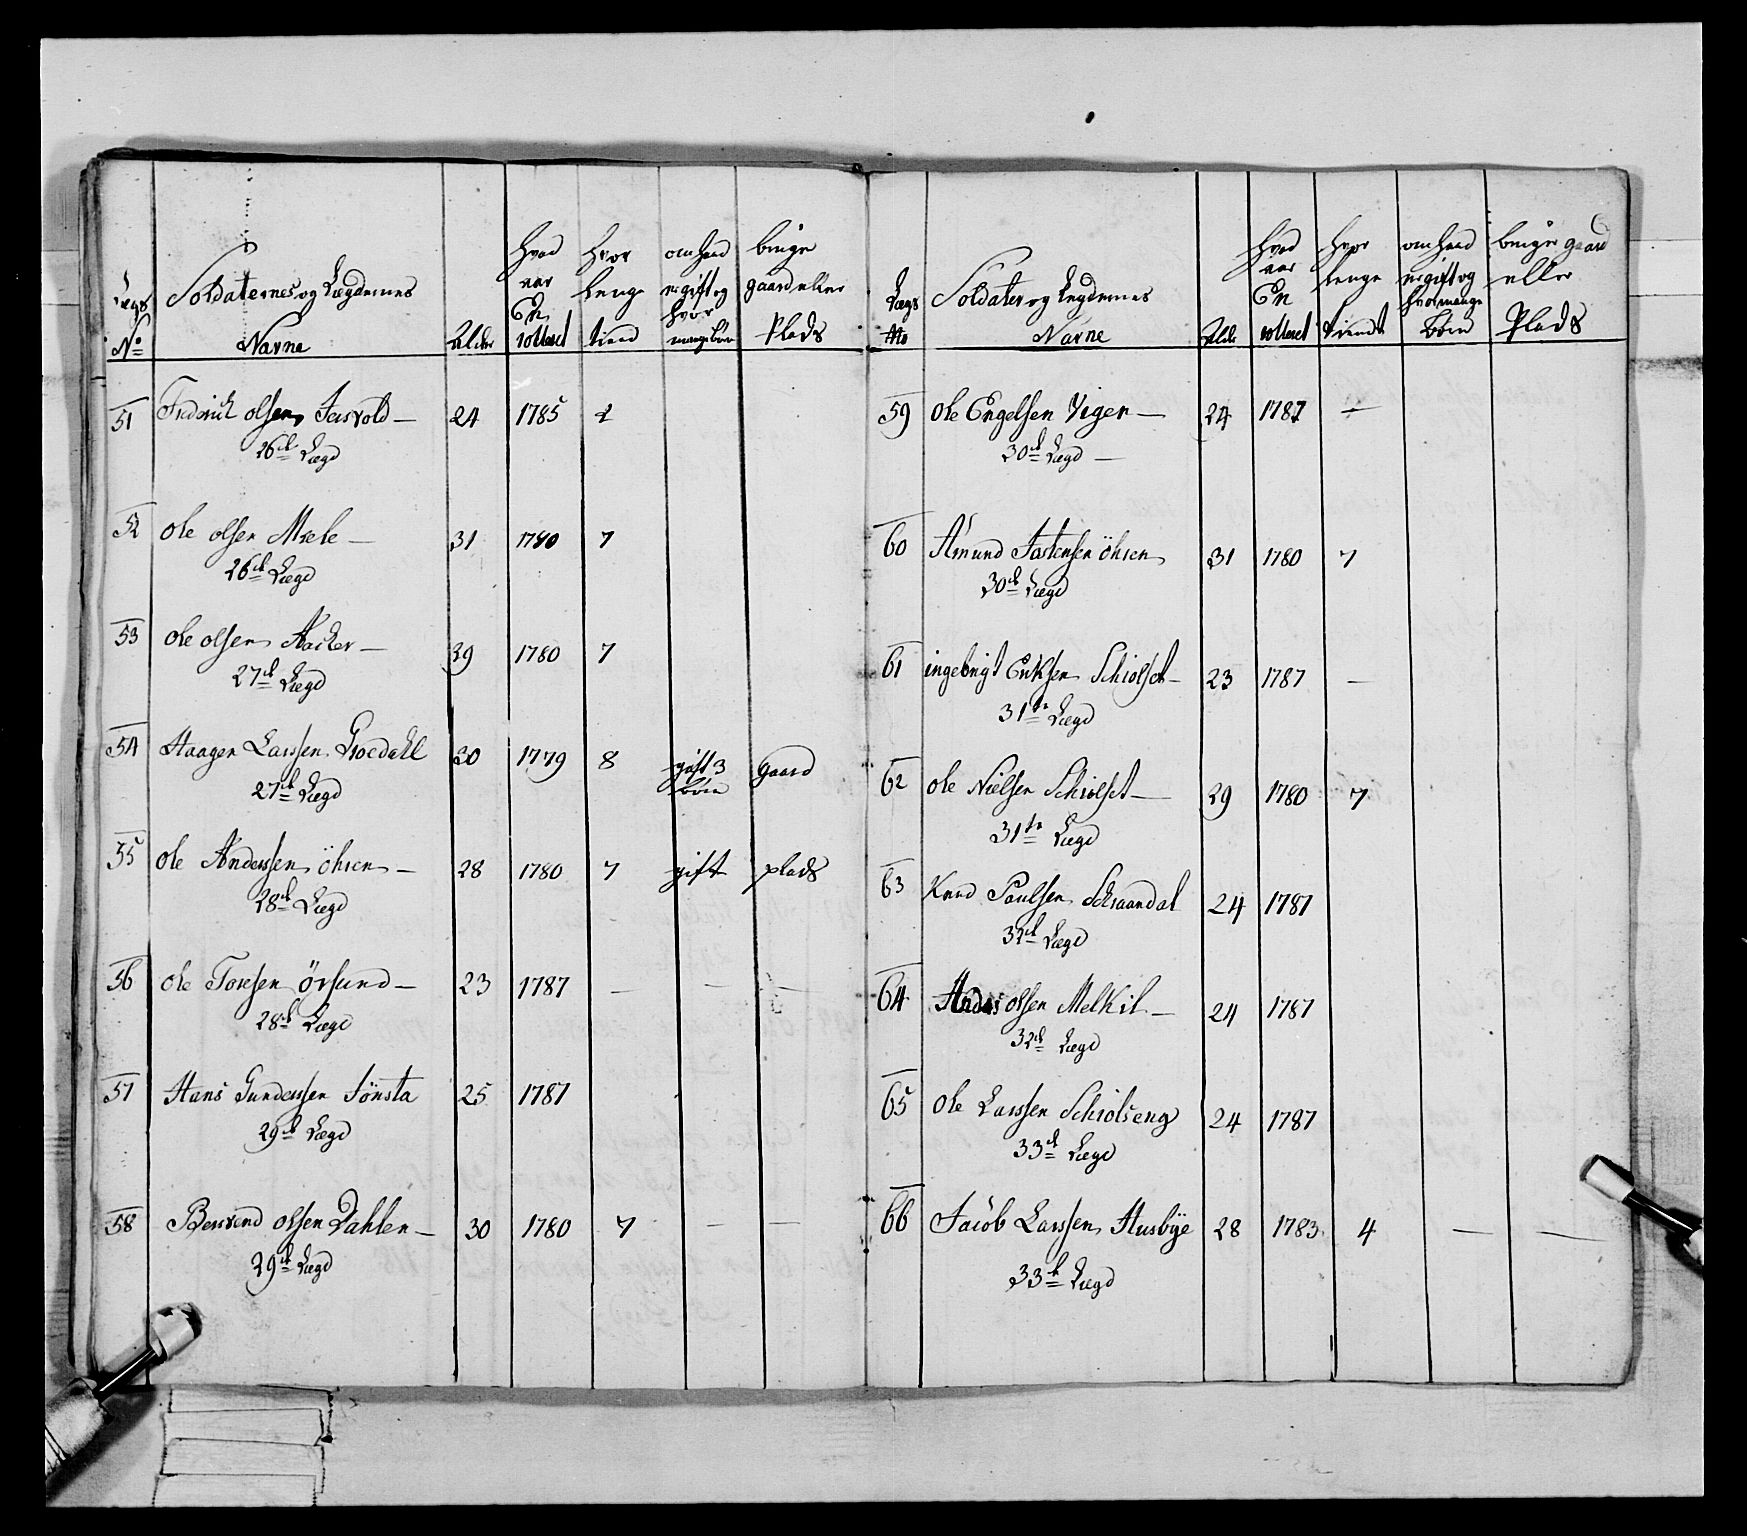 Lægs No
Soldaternes og Lægdernes Navne
Alder
Hvad aar En rolleret
Hvor lenge tient
om hand er gift og hvor mange börn
bruger gaard eller Plads
51 Fredrich olsen Jasvold — 24 1785 2
26de Lægd
52 Ole olsen Mæle — 31 1780 7
26de Lægd
53 Ole olsen Aacker — 39 1780 7
27de Lægd
54 Haagen Larssen Groedahl 30 1779 8 gift 3 börn gaard
27de Lægd
55 Ole Anderssen öhren — 28 1780 7 gift plads
28de Lægd
56 Ole Toresen Örsund — 23 1787 — — —
28de Lægd
57 Hans Gunderssen Tönsta 25 1787
29de Lægd
58 Berssvend olsen Dahlen — 30 1780 7 — —
29de Lægd
Lægs No
Soldater og Legdernes Navne
Alder
Hvad aar En rolleret
Hvor lenge tient
om hand er gift og hvor mange Börn
bruger gaard eller Plads
59 Ole Engelsen Vigen — 24 1787 —
30de Lægd —
60 Amund Jostensen öhren 31 1780 7
30de Lægd
61 ingebrigt Erichsen Schiolset — 23 1787 —
31te Lægd
62 Ole Nielsen Schiolset — 29 1780 7
31te Lægd
63 Knud Poulsen Schaandal 24 1787
32de Lægd
64 Andas olsen Melkil — 24 1787
32de Lægd
65 Ole Larssen Schiolseng 24 1787
33de Lægd
66 Jacob Larssen Husbÿe 28 1783 4 — —
33de Lægd